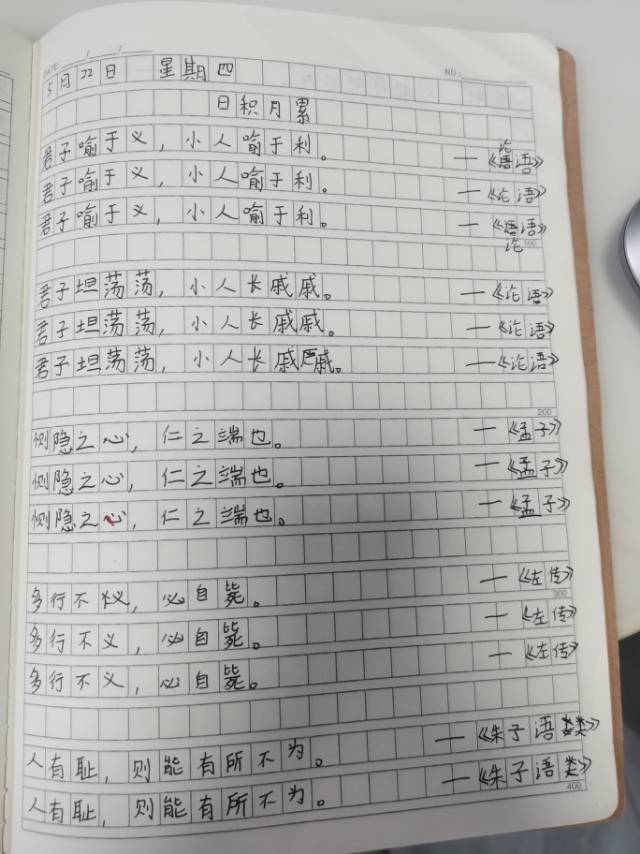 DATE: / /
NO:
5月22日 星期四
日积月累
君子喻于义，小人喻于利。 —《论语》
君子喻于义，小人喻于利。 —《论语》
君子喻于义，小人喻于利。 —《论语》
100
君子坦荡荡，小人长戚戚。 —《论语》
君子坦荡荡，小人长戚戚。 —《论语》
君子坦荡荡，小人长戚戚。 —《论语》
200
恻隐之心，仁之端也。 —《孟子》
恻隐之心，仁之端也。 —《孟子》
恻隐之心，仁之端也。 —《孟子》
多行不义，必自毙。 —《左传》
300
多行不义，必自毙。 —《左传》
多行不义，必自毙。 —《左传》
人有耻，则能有所不为。 —《朱子语类》
人有耻，则能有所不为。 —《朱子语类》
400